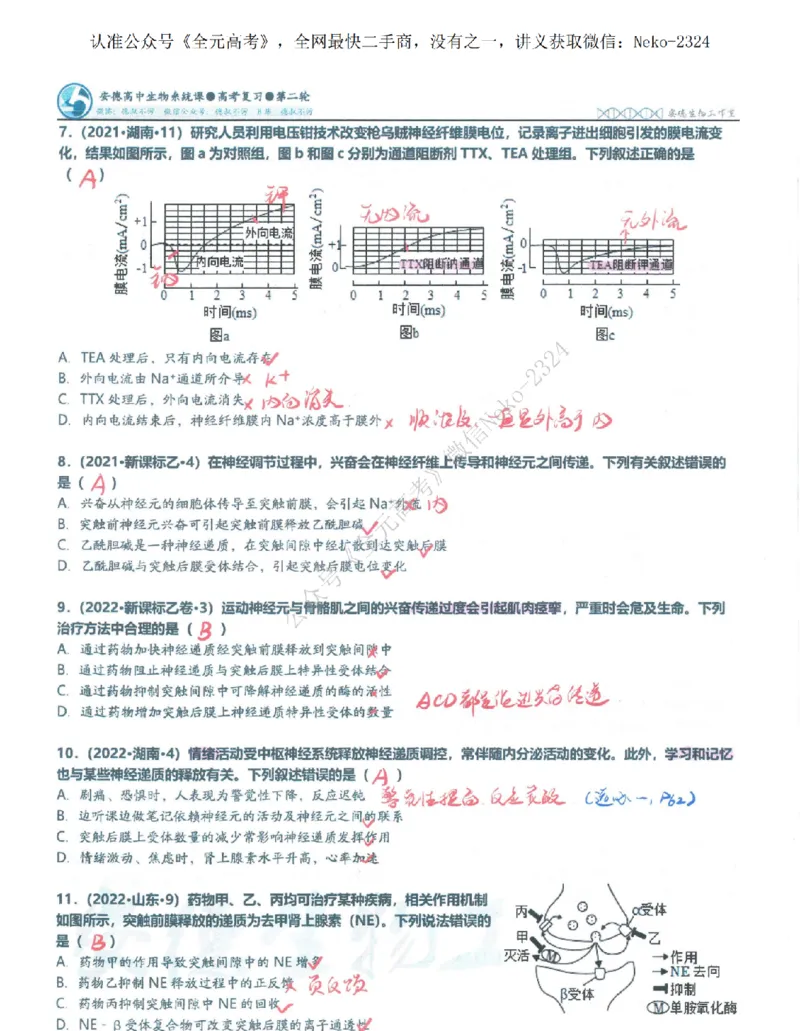 认准公众号《全元高考》，全网最快二手商，没有之一，讲义获取微信：Neko-2324
安德高中生物系统课●高考复习●第二轮
安德生物工作室
7.（2021·湖南·11）研究人员利用电压钳技术改变枪乌贼神经纤维膜电位，记录离子进出细胞引发的膜电流变
化，结果如图所示，图 a 为对照组，图 b 和图 c 分别为通道阻断剂 TTX、TEA 处理组。下列叙述正确的是
（ A ）
钾 无内流 无外流
膜电流(mA/cm²) +1 0 -1 外向电流 内向电流 钠 0 1 2 3 4 5 时间(ms) 图a
膜电流(mA/cm²) +1 0 TTX阻断钠通道 0 1 2 3 4 5 时间(ms) 图b
膜电流(mA/cm²) 0 -1 TEA阻断钾通道 0 1 2 3 4 5 时间(ms) 图c
A. TEA 处理后，只有内向电流存在
B. 外向电流由 Na⁺通道所介导 K+
C. TTX 处理后，外向电流消失 内向消失
D. 内向电流结束后，神经纤维膜内 Na⁺浓度高于膜外
8.（2021·新课标乙·4）在神经调节过程中，兴奋会在神经纤维上传导和神经元之间传递。下列有关叙述错误的
是（ A ）
A. 兴奋从神经元的细胞体传导至突触前膜，会引起 Na⁺外流 内
B. 突触前神经元兴奋可引起突触前膜释放乙酰胆碱
C. 乙酰胆碱是一种神经递质，在突触间隙中经扩散到达突触后膜
D. 乙酰胆碱与突触后膜受体结合，引起突触后膜电位变化
公众号《全元高考》微信Neko-2324
9.（2022·新课标乙卷·3）运动神经元与骨骼肌之间的兴奋传递过度会引起肌肉痉挛，严重时会危及生命。下列
治疗方法中合理的是（ B ）
A. 通过药物加快神经递质经突触前膜释放到突触间隙中
B. 通过药物阻止神经递质与突触后膜上特异性受体结合
C. 通过药物抑制突触间隙中可降解神经递质的酶的活性
D. 通过药物增加突触后膜上神经递质特异性受体的数量
ACD都是促进兴奋传递
10.（2022·湖南·4）情绪活动受中枢神经系统释放神经递质调控，常伴随内分泌活动的变化。此外，学习和记忆
也与某些神经递质的释放有关。下列叙述错误的是（ A ）
A. 剧痛、恐惧时，人表现为警觉性下降，反应迟钝 警觉性提高，反应灵敏
B. 边听课边做笔记依赖神经元的活动及神经元之间的联系
C. 突触后膜上受体数量的减少常影响神经递质发挥作用
D. 情绪激动、焦虑时，肾上腺素水平升高，心率加速
11.（2022·山东·9）药物甲、乙、丙均可治疗某种疾病，相关作用机制
如图所示，突触前膜释放的递质为去甲肾上腺素（NE）。下列说法错误的
是（ B ）
A. 药物甲的作用导致突触间隙中的 NE 增多
B. 药物乙抑制 NE 释放过程中的正反馈 负反馈
C. 药物丙抑制突触间隙中 NE 的回收
D. NE﹣β受体复合物可改变突触后膜的离子通透性
丙 α受体
甲 乙
灭活 M →作用
→NE去向
β受体 抑制
M单胺氧化酶